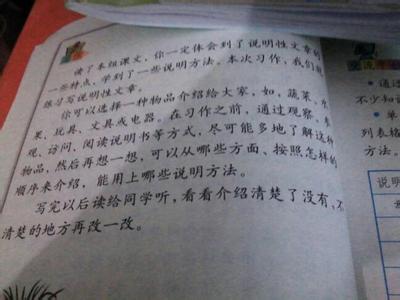 读了本组课文,你一定体会到了说明性文章的
一些特点,学到了一些说明方法。本次习作,我们就
练习写说明性文章。
你可以选择一种物品介绍给大家,如,蔬菜、水
果、玩具、文具或电器。在习作之前,通过观察、参
观、访问、阅读说明书等方式,尽可能多地了解这种
物品,然后再想一想,可以从哪些方面、按照怎样的
顺序来介绍,能用上哪些说明方法。
写完以后读给同学听,看看介绍清楚了没有,不
清楚的地方再改一改。
通过
不少知识
单
列表格
方法。
说明